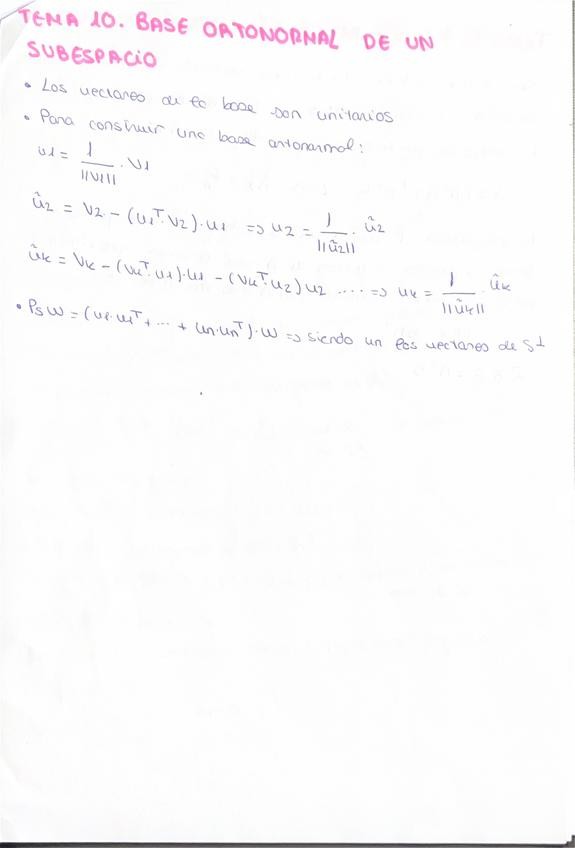 TEMA 10. BASE ORTONORMAL DE UN
SUBESPACIO
• Los vectores de la base son unitarios
• Para construir una base ortonormal:
u1 = 1/||V1|| · V1
ũ2 = V2 - (u1ᵀ·V2)·u1 => u2 = 1/||ũ2|| · ũ2
ũk = Vk - (Vkᵀ·u1)·u1 - (Vkᵀ·u2)u2 ..... => uk = 1/||ũk|| · ũk
• PsW = (u1·u1ᵀ + ... + un·unᵀ)·W => siendo un los vectores de S⊥